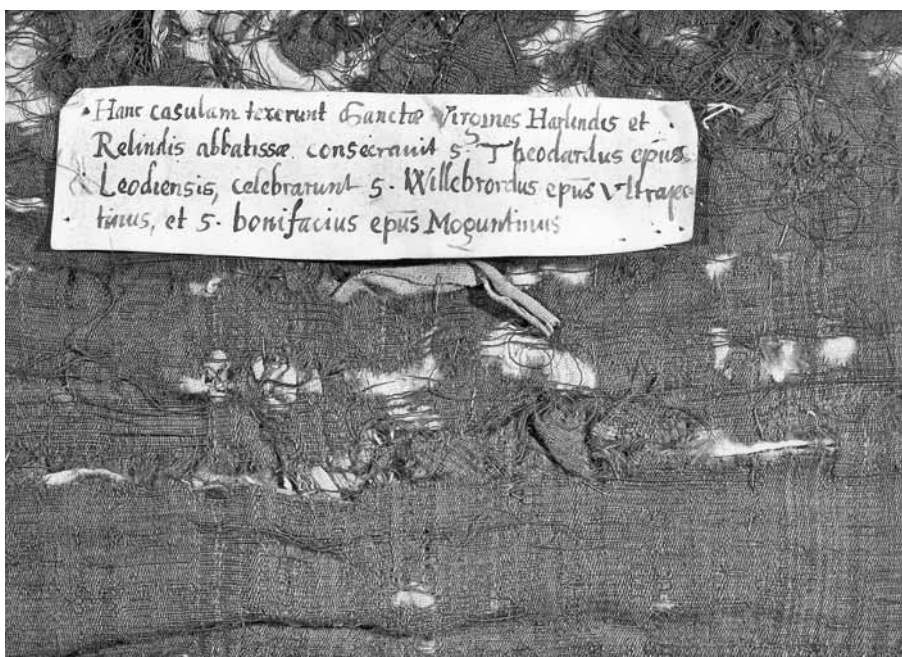 Hanc casulam texerunt Sanctæ Virgines Harlindis et
Relindis abbatissæ consecrauit S. Theodardus epūs
Leodiensis, celebrarunt S. Willebrordus epūs Vltraiec
tinus, et S. bonifacius epūs Moguntinus